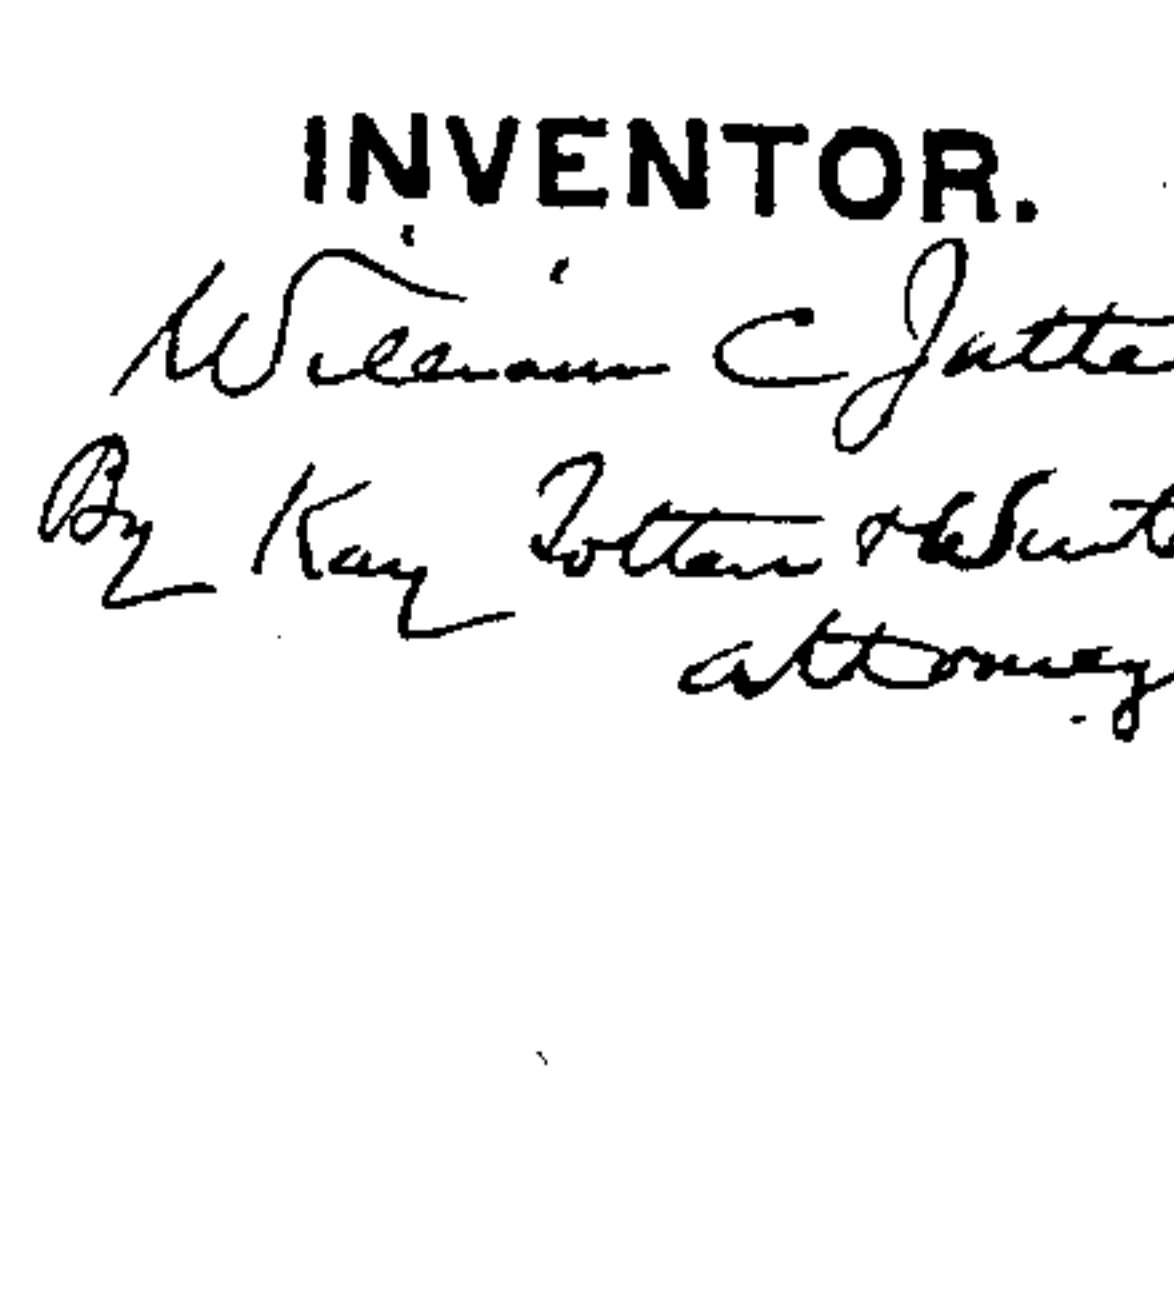 INVENTOR.
William C
By Kay Totten &
attorney